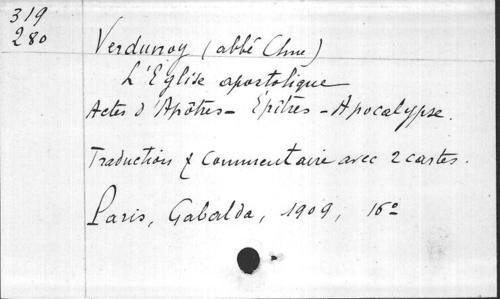 319
280
Verdunoy (abbé Chne)
L'Eglise apostolique
Actes d'Apôtres - Épîtres - Apocalypse.
Traduction & Commentaire avec 2 cartes.
Paris, Gabalda, 1909, 16°